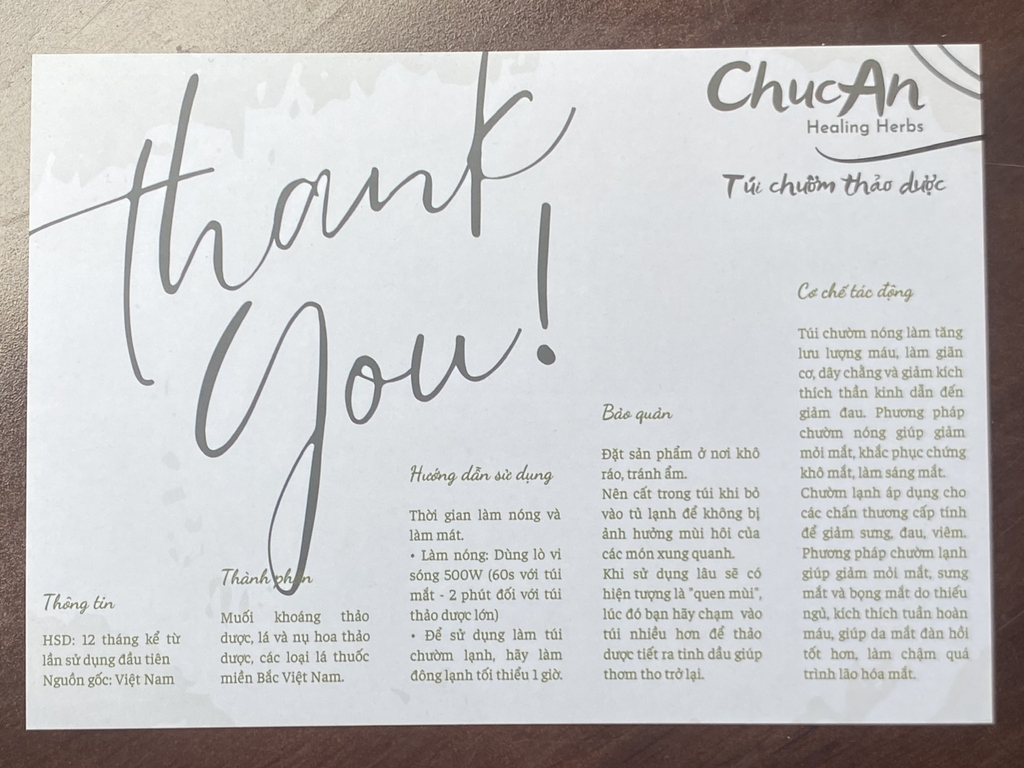 thank
you!
ChucAn
Healing Herbs
Túi chườm thảo dược
Thông tin
HSD: 12 tháng kể từ
lần sử dụng đầu tiên
Nguồn gốc: Việt Nam
Thành phần
Muối khoáng thảo
dược, lá và nụ hoa thảo
dược, các loại lá thuốc
miền Bắc Việt Nam.
Hướng dẫn sử dụng
Thời gian làm nóng và
làm mát.
• Làm nóng: Dùng lò vi
sóng 500W (60s với túi
mắt - 2 phút đối với túi
thảo dược lớn)
• Để sử dụng làm túi
chườm lạnh, hãy làm
đông lạnh tối thiểu 1 giờ.
Bảo quản
Đặt sản phẩm ở nơi khô
ráo, tránh ẩm.
Nên cất trong túi khi bỏ
vào tủ lạnh để không bị
ảnh hưởng mùi hôi của
các món xung quanh.
Khi sử dụng lâu sẽ có
hiện tượng là "quen mùi",
lúc đó bạn hãy chạm vào
túi nhiều hơn để thảo
dược tiết ra tinh dầu giúp
thơm tho trở lại.
Cơ chế tác động
Túi chườm nóng làm tăng
lưu lượng máu, làm giãn
cơ, dây chằng và giảm kích
thích thần kinh dẫn đến
giảm đau. Phương pháp
chườm nóng giúp giảm
mỏi mắt, khắc phục chứng
khô mắt, làm sáng mắt.
Chườm lạnh áp dụng cho
các chấn thương cấp tính
để giảm sưng, đau, viêm.
Phương pháp chườm lạnh
giúp giảm mỏi mắt, sưng
mắt và bọng mắt do thiếu
ngủ, kích thích tuần hoàn
máu, giúp da mắt đàn hồi
tốt hơn, làm chậm quá
trình lão hóa mắt.